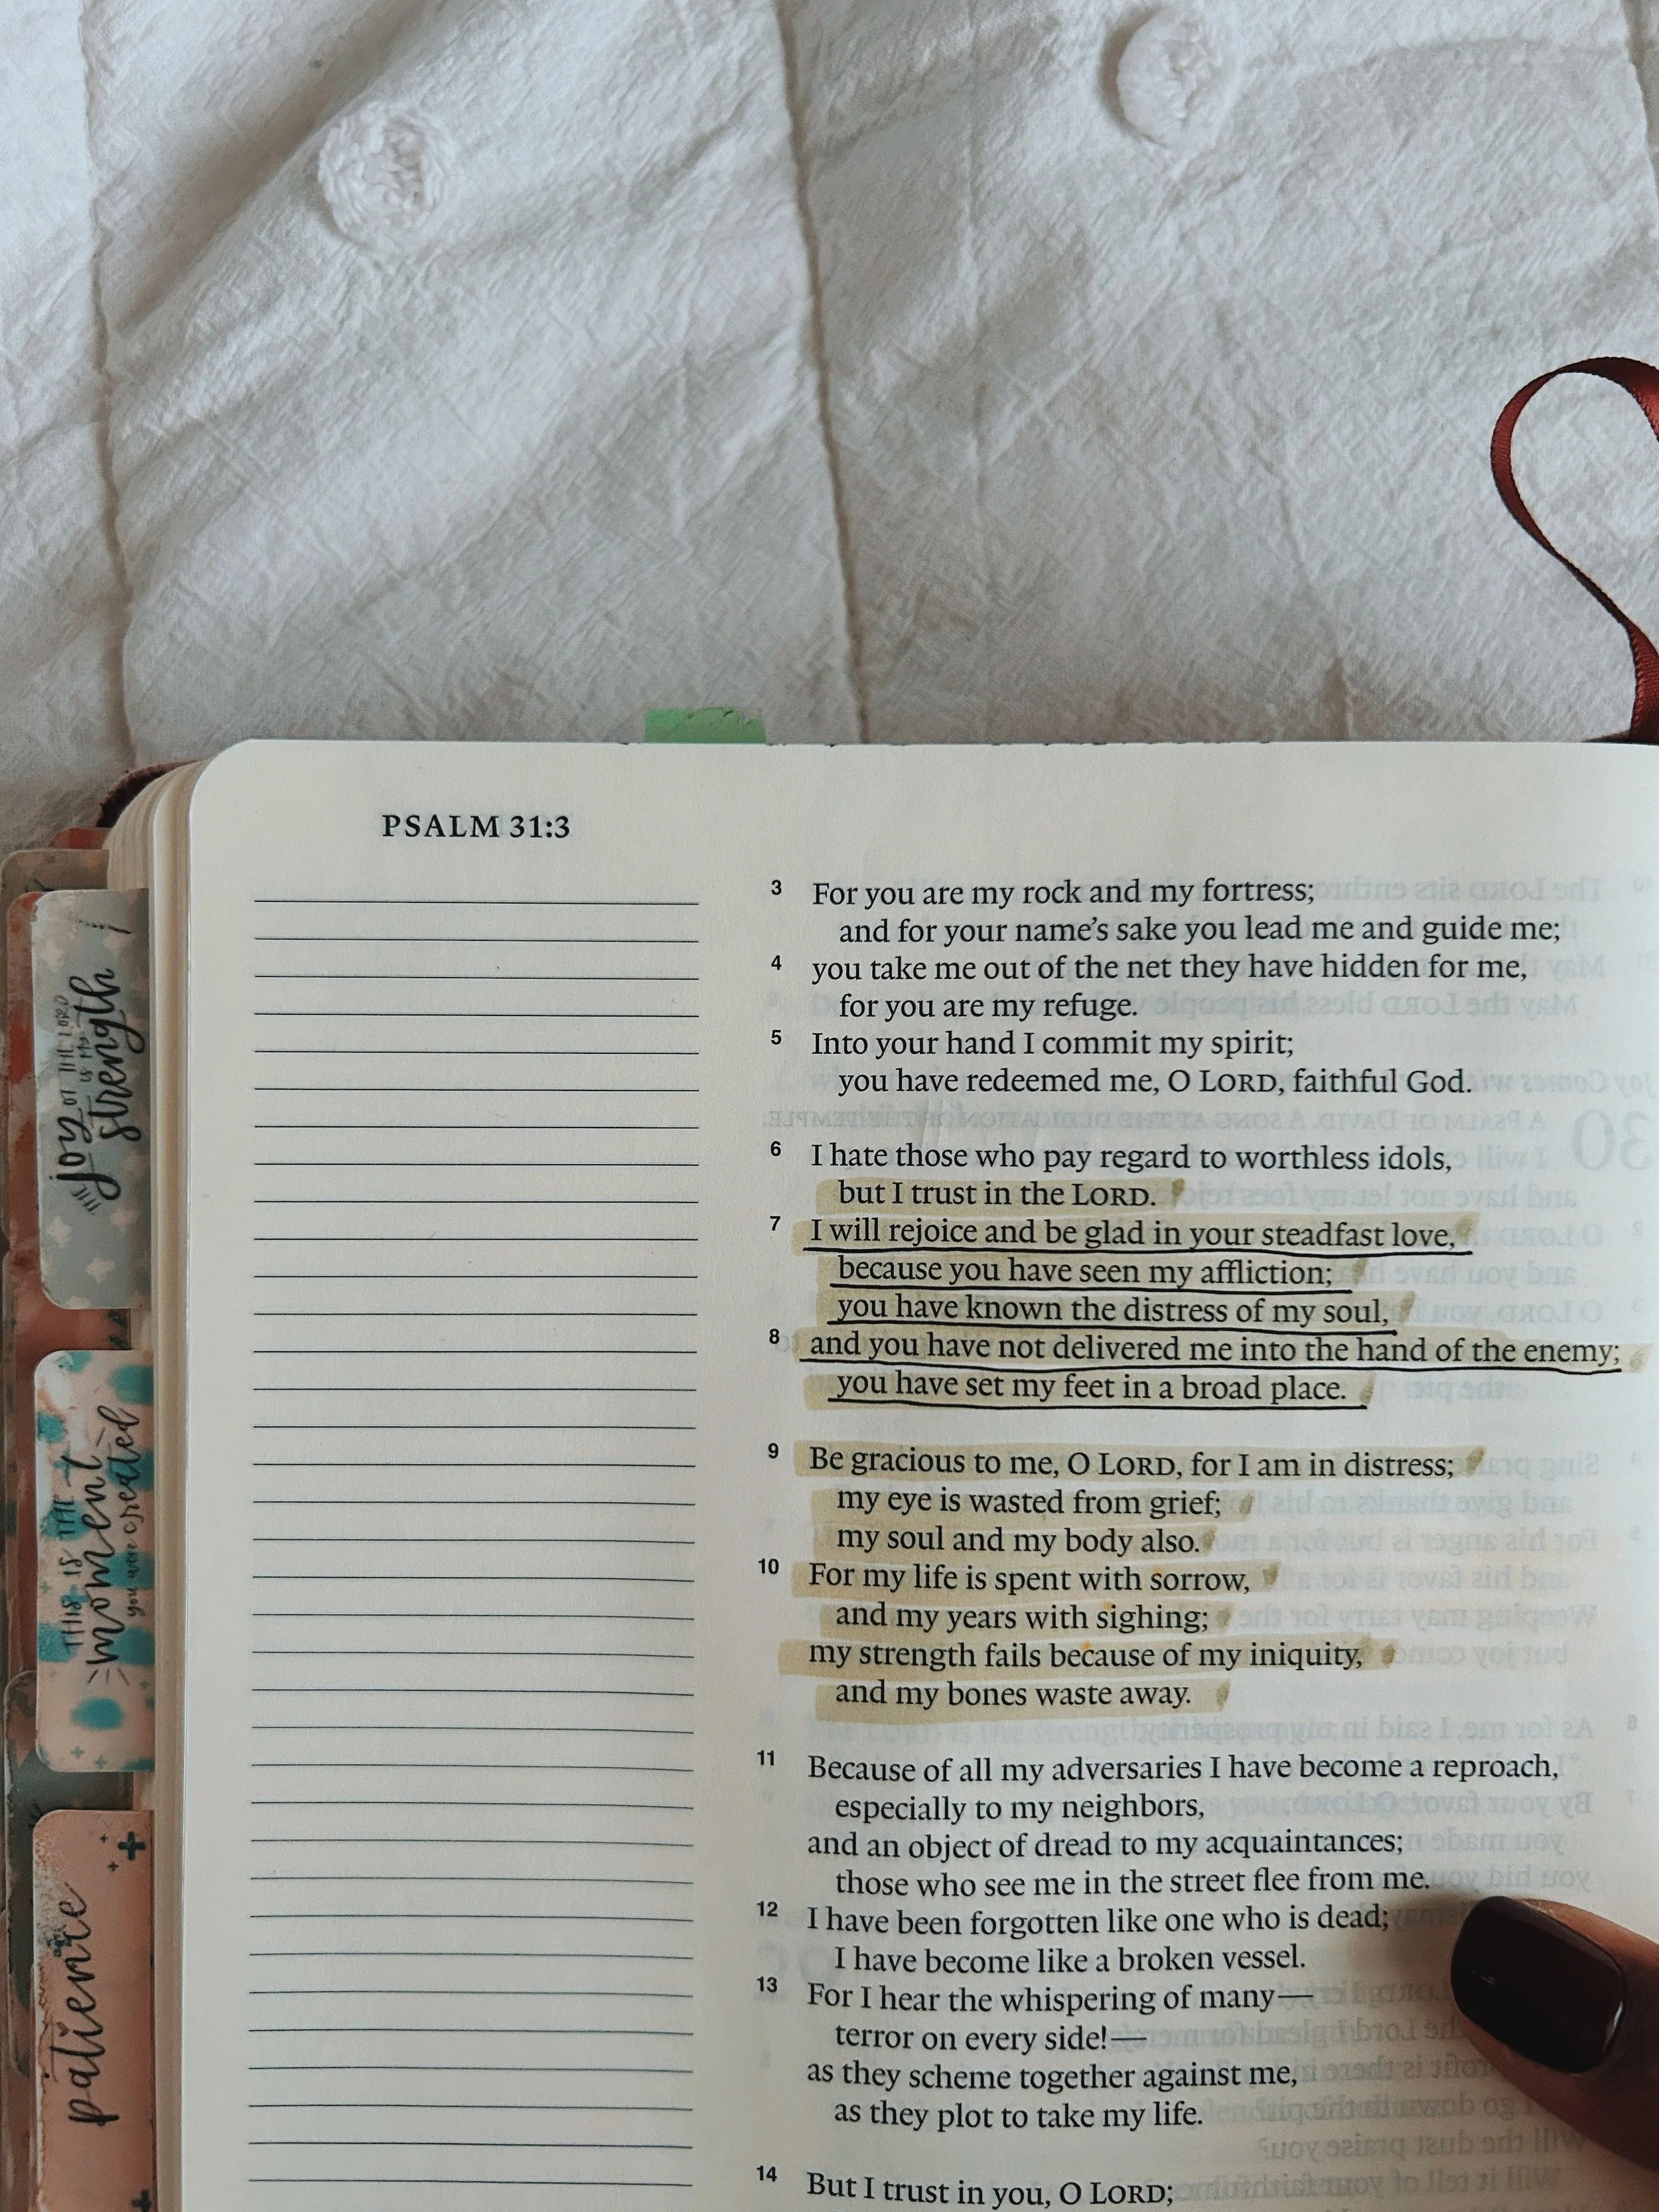 PSALM 31:3
3 For you are my rock and my fortress;
and for your name’s sake you lead me and guide me;
4 you take me out of the net they have hidden for me,
for you are my refuge.
5 Into your hand I commit my spirit;
you have redeemed me, O LORD, faithful God.
6 I hate those who pay regard to worthless idols,
but I trust in the LORD.
7 I will rejoice and be glad in your steadfast love,
because you have seen my affliction;
you have known the distress of my soul,
8 and you have not delivered me into the hand of the enemy;
you have set my feet in a broad place.
9 Be gracious to me, O LORD, for I am in distress;
my eye is wasted from grief;
my soul and my body also.
10 For my life is spent with sorrow,
and my years with sighing;
my strength fails because of my iniquity,
and my bones waste away.
11 Because of all my adversaries I have become a reproach,
especially to my neighbors,
and an object of dread to my acquaintances;
those who see me in the street flee from me.
12 I have been forgotten like one who is dead;
I have become like a broken vessel.
13 For I hear the whispering of many—
terror on every side!—
as they scheme together against me,
as they plot to take my life.
14 But I trust in you, O LORD;
THE joy OF THE LORD
IS MY
strength
THIS IS THE
moment
you were created
patience